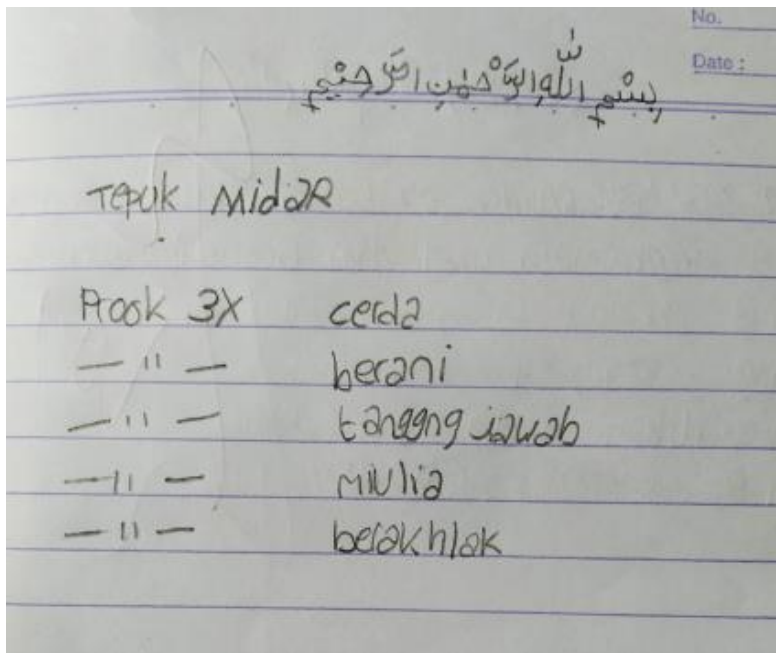 No.
Date:
بِسْمِ اللّٰهِ الرَّحْمٰنِ الرَّحِيْمِ
Tepuk MidaR
Prook 3X cerda
— " — berani
— " — tanggng jawab
— " — mulia
— " — berakhlak